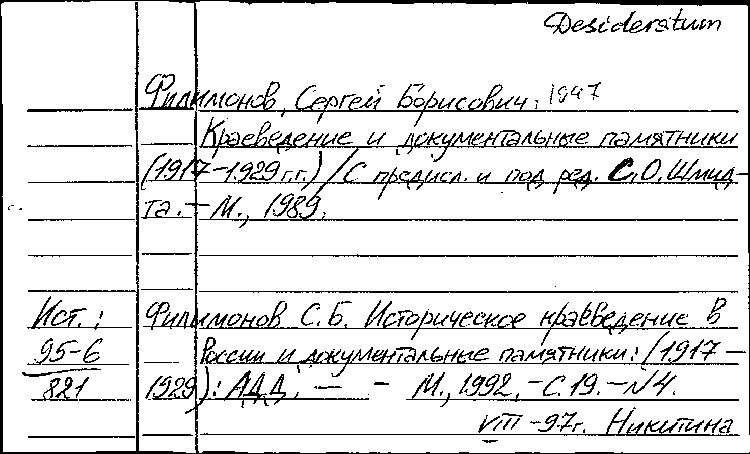 Desideratum
Филимонов, Сергей Борисович, 1947
Краеведение и документальные памятники
(1917-1929 г.г.) / С предисл. и под ред. С.О. Шмид-
та. - М., 1989.
Ист.: Филимонов С.Б. Историческое краеведение в
95-6 России и документальные памятники: (1917 -
821 1929): АДД. - - М., 1992. - С. 19. - N4.
VIII - 97г. Никитина